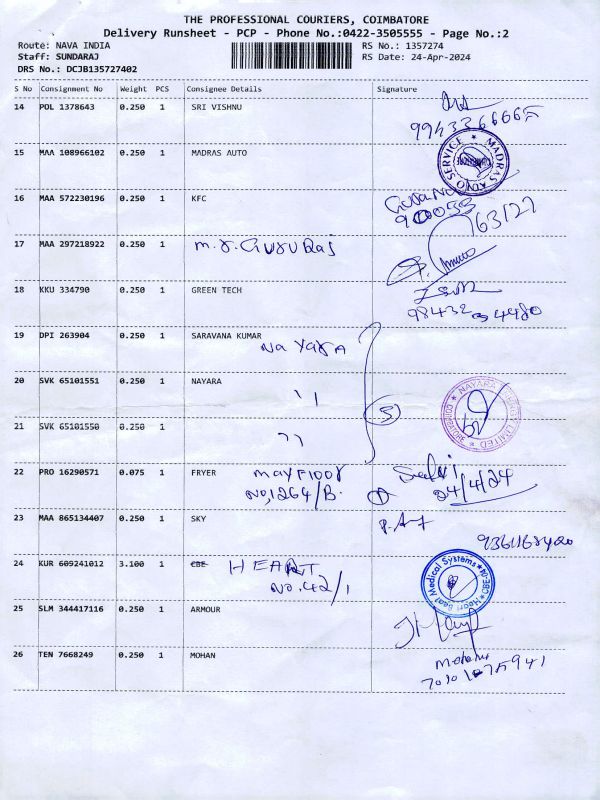 THE PROFESSIONAL COURIERS, COIMBATORE
Delivery Runsheet - PCP - Phone No.:0422-3505555 - Page No.:2
Route: NAVA INDIA RS No.: 1357274
Staff: SUNDARAJ RS Date: 24-Apr-2024
DRS No.: DCJB135727402
S No Consignment No Weight PCS Consignee Details Signature
14 POL 1378643 0.250 1 SRI VISHNU
15 MAA 108966102 0.250 1 MADRAS AUTO
MADRAS AUTO SERVICE
16 MAA 572230196 0.250 1 KFC
17 MAA 297218922 0.250 1 m.r.GuruRaj
18 KKU 334790 0.250 1 GREEN TECH
19 DPI 263904 0.250 1 SARAVANA KUMAR
Nayara
20 SVK 65101551 0.250 1 NAYARA
COIMBATORE
21 SVK 65101550 0.250 1
22 PRO 16290571 0.075 1 FRYER mayFloor
No,1264/B. 24/4/24
23 MAA 865134407 0.250 1 SKY
24 KUR 609241012 3.100 1 CBE HEART
No.42/1
Heart Beat Medical Systems
25 SLM 344417116 0.250 1 ARMOUR
26 TEN 7668249 0.250 1 MOHAN